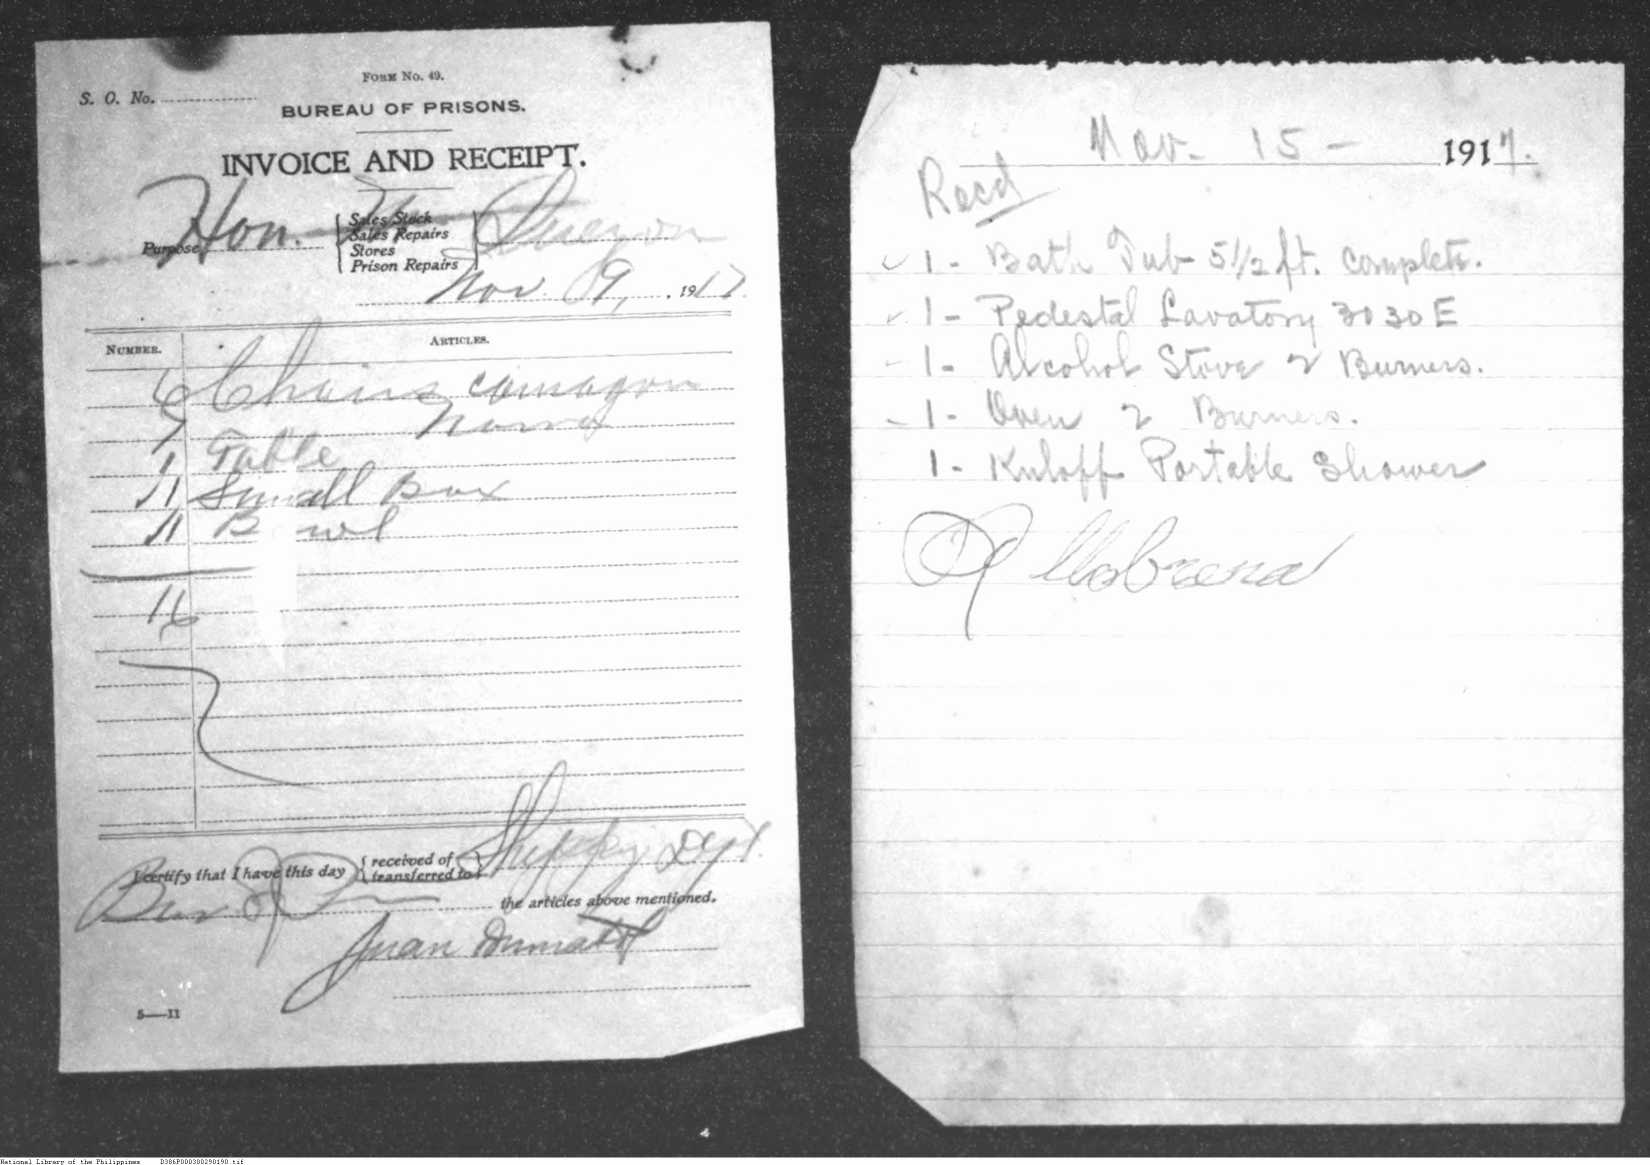 FORM NO. 49.
S. O. No.
BUREAU OF PRISONS.
INVOICE AND RECEIPT.
Purpose Hon. { Sales Stock
Sales Repairs
Stores
Prison Repairs } Quezon
Nov. 19, 1917
NUMBER. ARTICLES.
Chairs camagon
Narra
1 Table
1 Small Box
1 Bowl
16
I certify that I have this day { received of
transferred to } Shippg Dept.
Bur of Pri
the articles above mentioned.
Juan
5—11
Nov. 15 - 1917.
Recd
1 - Bath Tub 5 1/2 ft. complete.
1 - Pedestal Lavatory 3030 E
1 - Alcohol Stove 2 Burners.
1 - Oven 2 Burners.
1 - Portable Shower
National Library of the Philippines D386P000300290190.tif